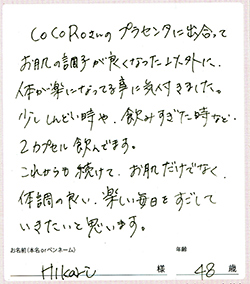 CoCoRoさんの プラセンタに出合って
お肌の調子が良くなった以外に、
体が楽になってる事に気付きました。
少ししんどい時や、飲みすぎた時など、
2カプセル飲んでます。
これからも続けて、お肌だけでなく、
体調の良い、楽しい毎日をすごして
いきたいと思います。
お名前(本名orペンネーム) 年齢
Hikari 様 48 歳